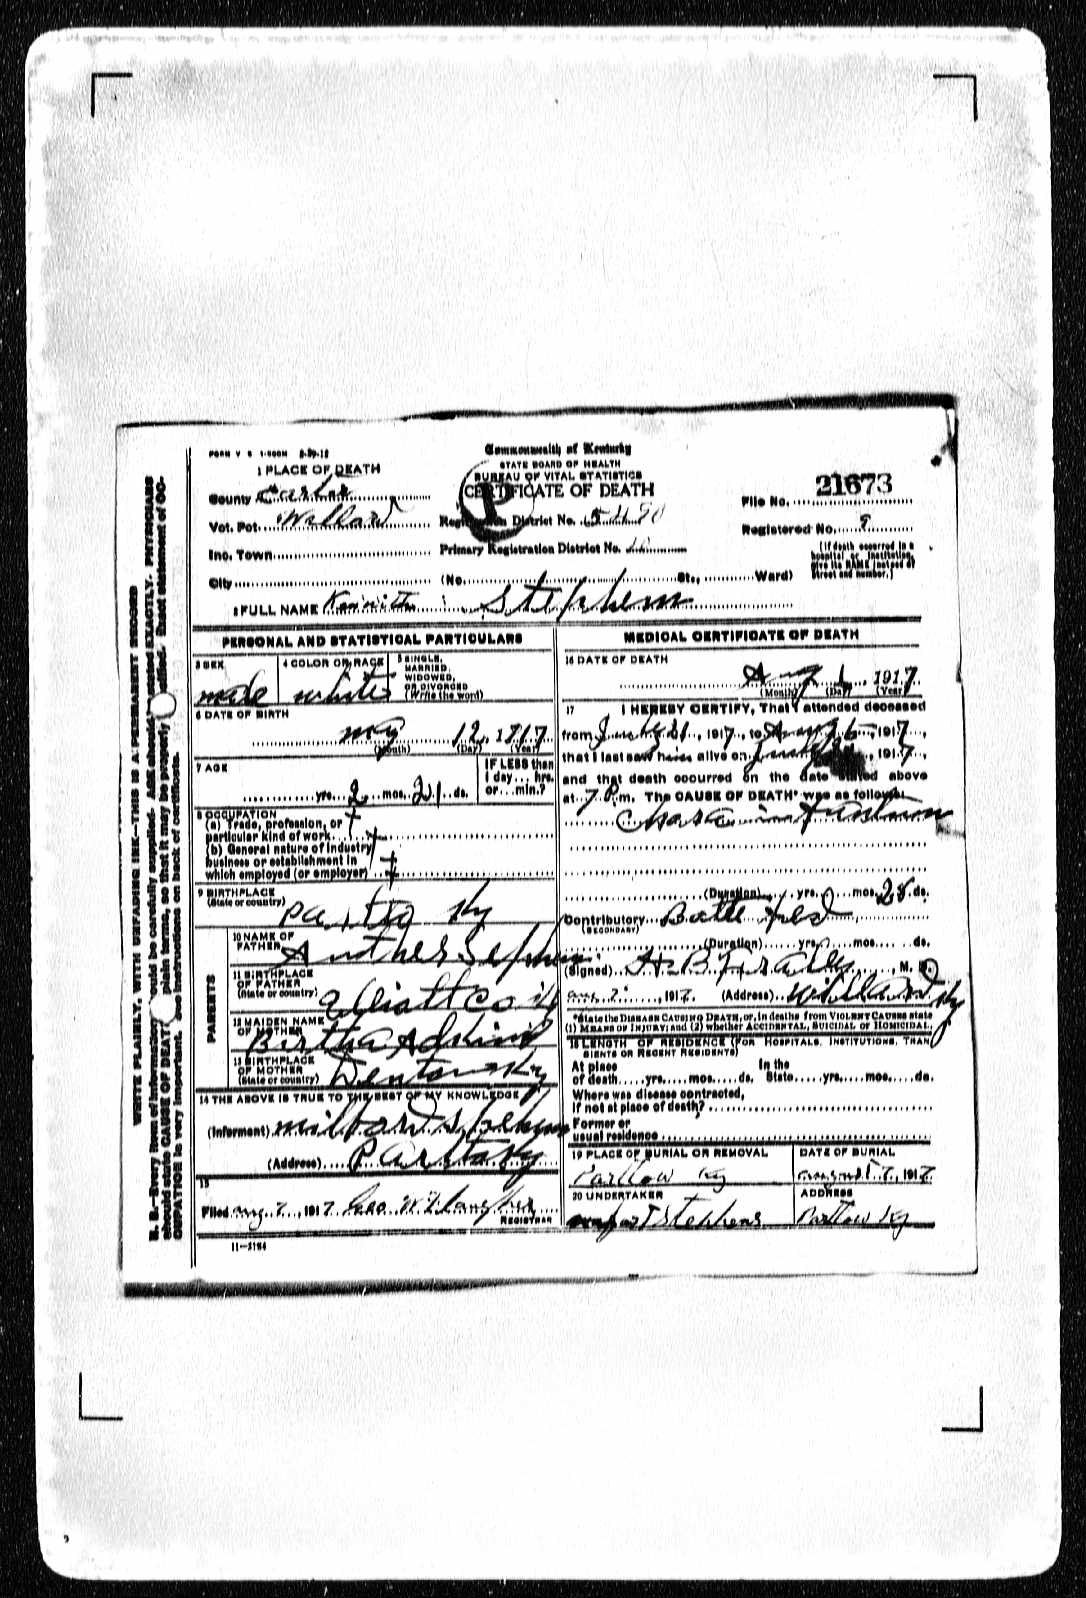 FORM V S 1-500M 8-29-16
Commonwealth of Kentucky
STATE BOARD OF HEALTH
BUREAU OF VITAL STATISTICS
CERTIFICATE OF DEATH
1 PLACE OF DEATH
County Carter
Vot. Pct. Willard
Inc. Town
City
Registration District No.
Primary Registration District No.
(No. St., Ward)
File No. 21673
Registered No. 9
(If death occurred in a hospital or institution, give its NAME instead of street and number.)
2 FULL NAME Kennith Stephens
PERSONAL AND STATISTICAL PARTICULARS
3 SEX
male
4 COLOR OR RACE
white
5 SINGLE, MARRIED, WIDOWED, OR DIVORCED (Write the word)
6 DATE OF BIRTH
may 12, 1917
(Month) (Day) (Year)
7 AGE
yrs. 2 mos. 21 ds.
IF LESS than 1 day... hrs. or... min.?
8 OCCUPATION
(a) Trade, profession, or particular kind of work
(b) General nature of industry business or establishment in which employed (or employer)
9 BIRTHPLACE
(State or country)
Ky
PARENTS
10 NAME OF FATHER
11 BIRTHPLACE OF FATHER
(State or country) Elliott Co Ky
12 MAIDEN NAME OF MOTHER
Bertha Adkins
13 BIRTHPLACE OF MOTHER
(State or country) Denton Ky
14 THE ABOVE IS TRUE TO THE BEST OF MY KNOWLEDGE
(Informant)
(Address)
15
Filed Aug 7, 1917 Geo W
REGISTRAR
11-3184
MEDICAL CERTIFICATE OF DEATH
16 DATE OF DEATH
Aug 6, 1917
(Month) (Day) (Year)
17 I HEREBY CERTIFY, That I attended deceased
from July 21, 1917, to Aug 6, 1917,
that I last saw him alive on July, 1917,
and that death occurred on the date stated above
at 7 P.m. The CAUSE OF DEATH* was as follows:
(Duration) yrs. mos. 28 ds.
Contributory Bottle Fed
(SECONDARY)
(Duration) yrs. mos. ds.
(Signed) H B, M. D.
Aug 7, 1917 (Address) Willard Ky
*State the DISEASE CAUSING DEATH, or, in deaths from VIOLENT CAUSES state
(1) MEANS OF INJURY; and (2) whether ACCIDENTAL, SUICIDAL or HOMICIDAL
18 LENGTH OF RESIDENCE (FOR HOSPITALS, INSTITUTIONS, TRANSIENTS OR RECENT RESIDENTS)
At place of death yrs. mos. ds. In the State yrs. mos. ds.
Where was disease contracted,
if not at place of death?
Former or
usual residence
19 PLACE OF BURIAL OR REMOVAL
Partlow Ky
DATE OF BURIAL
august 7, 1917
20 UNDERTAKER
Stephens
ADDRESS
Partlow Ky
WRITE PLAINLY, WITH UNFADING INK—THIS IS A PERMANENT RECORD